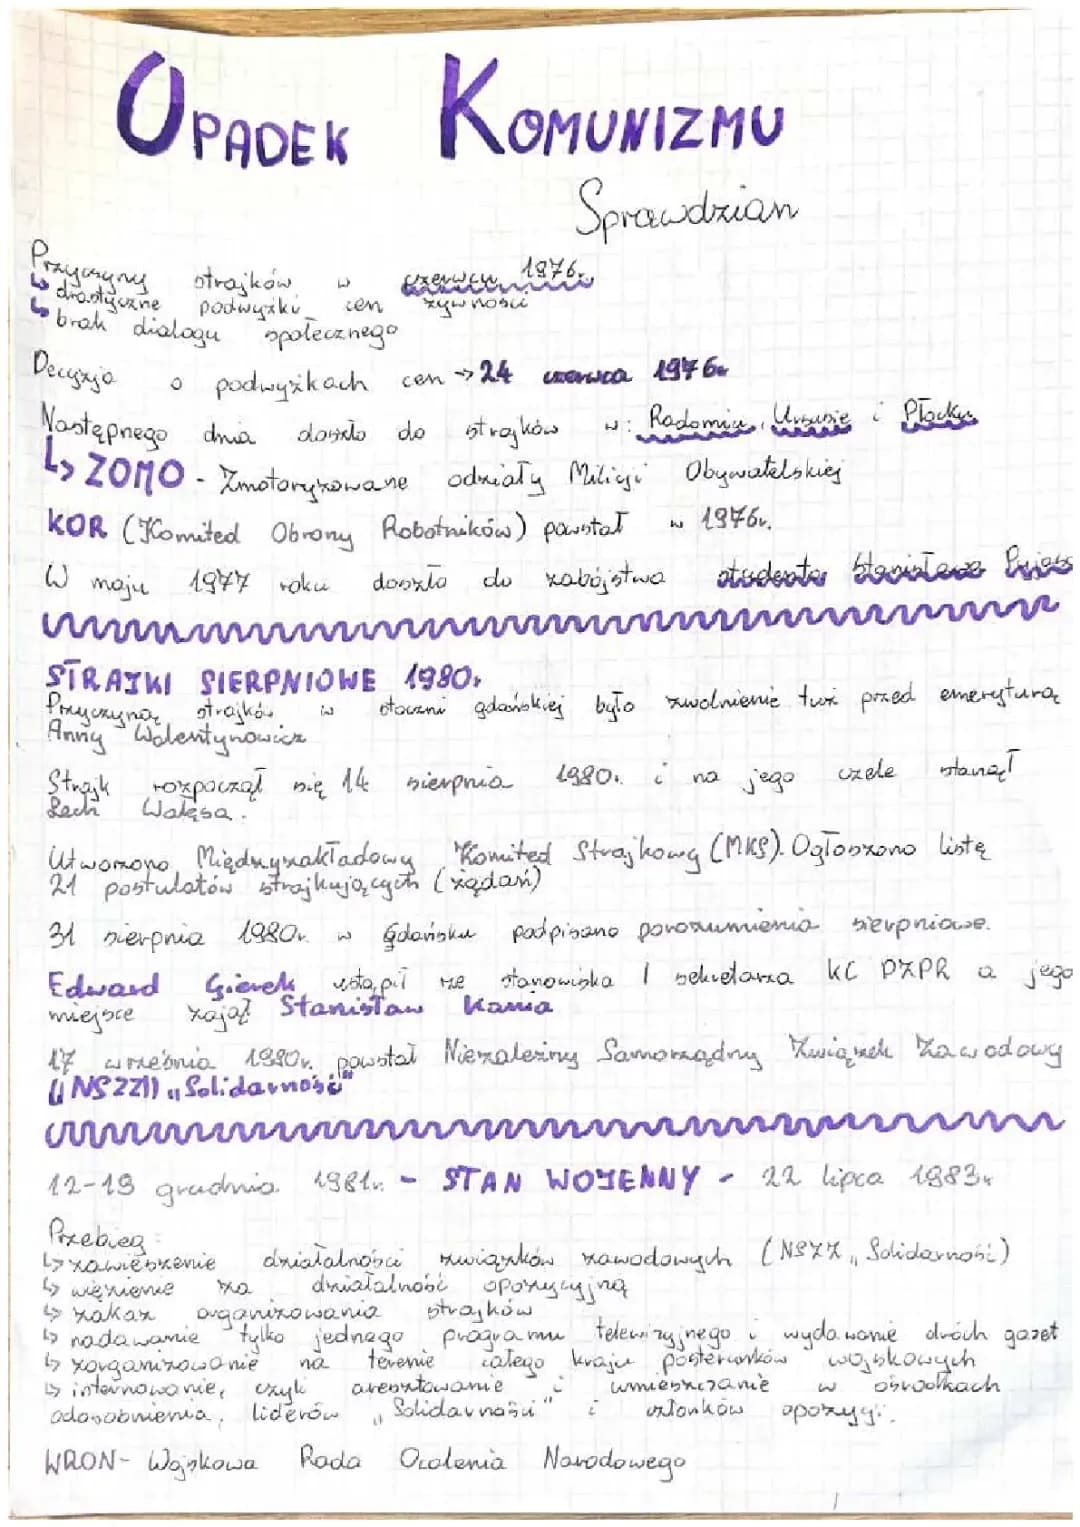 OPADEK KOMUNIZMU
Sprawdzian
Przyczyny strajków w czerwcu 1976r.
↳ drastyczne podwyżki cen żywności
↳ brak dialogu społecznego
Decyzja o podwyżkach cen → 24 czerwca 1976r
Następnego dnia doszło do strajków w: Radomiu, Ursusie i Płocku
↳ ZOMO - Zmotoryzowane odziały Milicji Obywatelskiej
KOR (Komited Obrony Robotników) powstał w 1976r.
W maju 1977 roku doszło do zabójstwa studenta Stanisława Pyjasa
STRAJKI SIERPNIOWE 1980r
Przyczyną strajków w stoczni gdańskiej było zwolnienie tuż przed emeryturą
Anny Walentynowicz
Strajk rozpoczął się 14 sierpnia 1980r. i na jego czele stanął
Lech Wałęsa.
Utworzono Międzyzakładowy Komited Strajkowy (MKS). Ogłoszono listę
21 postulatów strajkujących (żądań)
31 sierpnia 1980r. w Gdańsku podpisano porozumienia sierpniowe.
Edward Gierek ustąpił ze stanowiska I sekretarza KC PZPR a jego
miejsce zajął Stanisław Kania
17 września 1980r. powstał Niezależny Samorządny Związek Zawodowy
((NSZZ)) „Solidarność"
12-13 grudnia 1981r. - STAN WOJENNY - 22 lipca 1983r
Przebieg:
↳ zawieszenie działalności związków zawodowych (NSZZ „Solidarność)
↳ więzienie za działalność opozycyjną
↳ zakaz organizowania strajków
↳ nadawanie tylko jednego programu telewizyjnego i wydawanie dwóch gazet
↳ zorganizowanie na terenie całego kraju posterunków wojskowych
↳ internowanie, czyli aresztowanie i umieszczanie w ośrodkach
odosobnienia, liderów „Solidarności" i członków opozycji.
WRON- Wojskowa Rada Ocalenia Narodowego